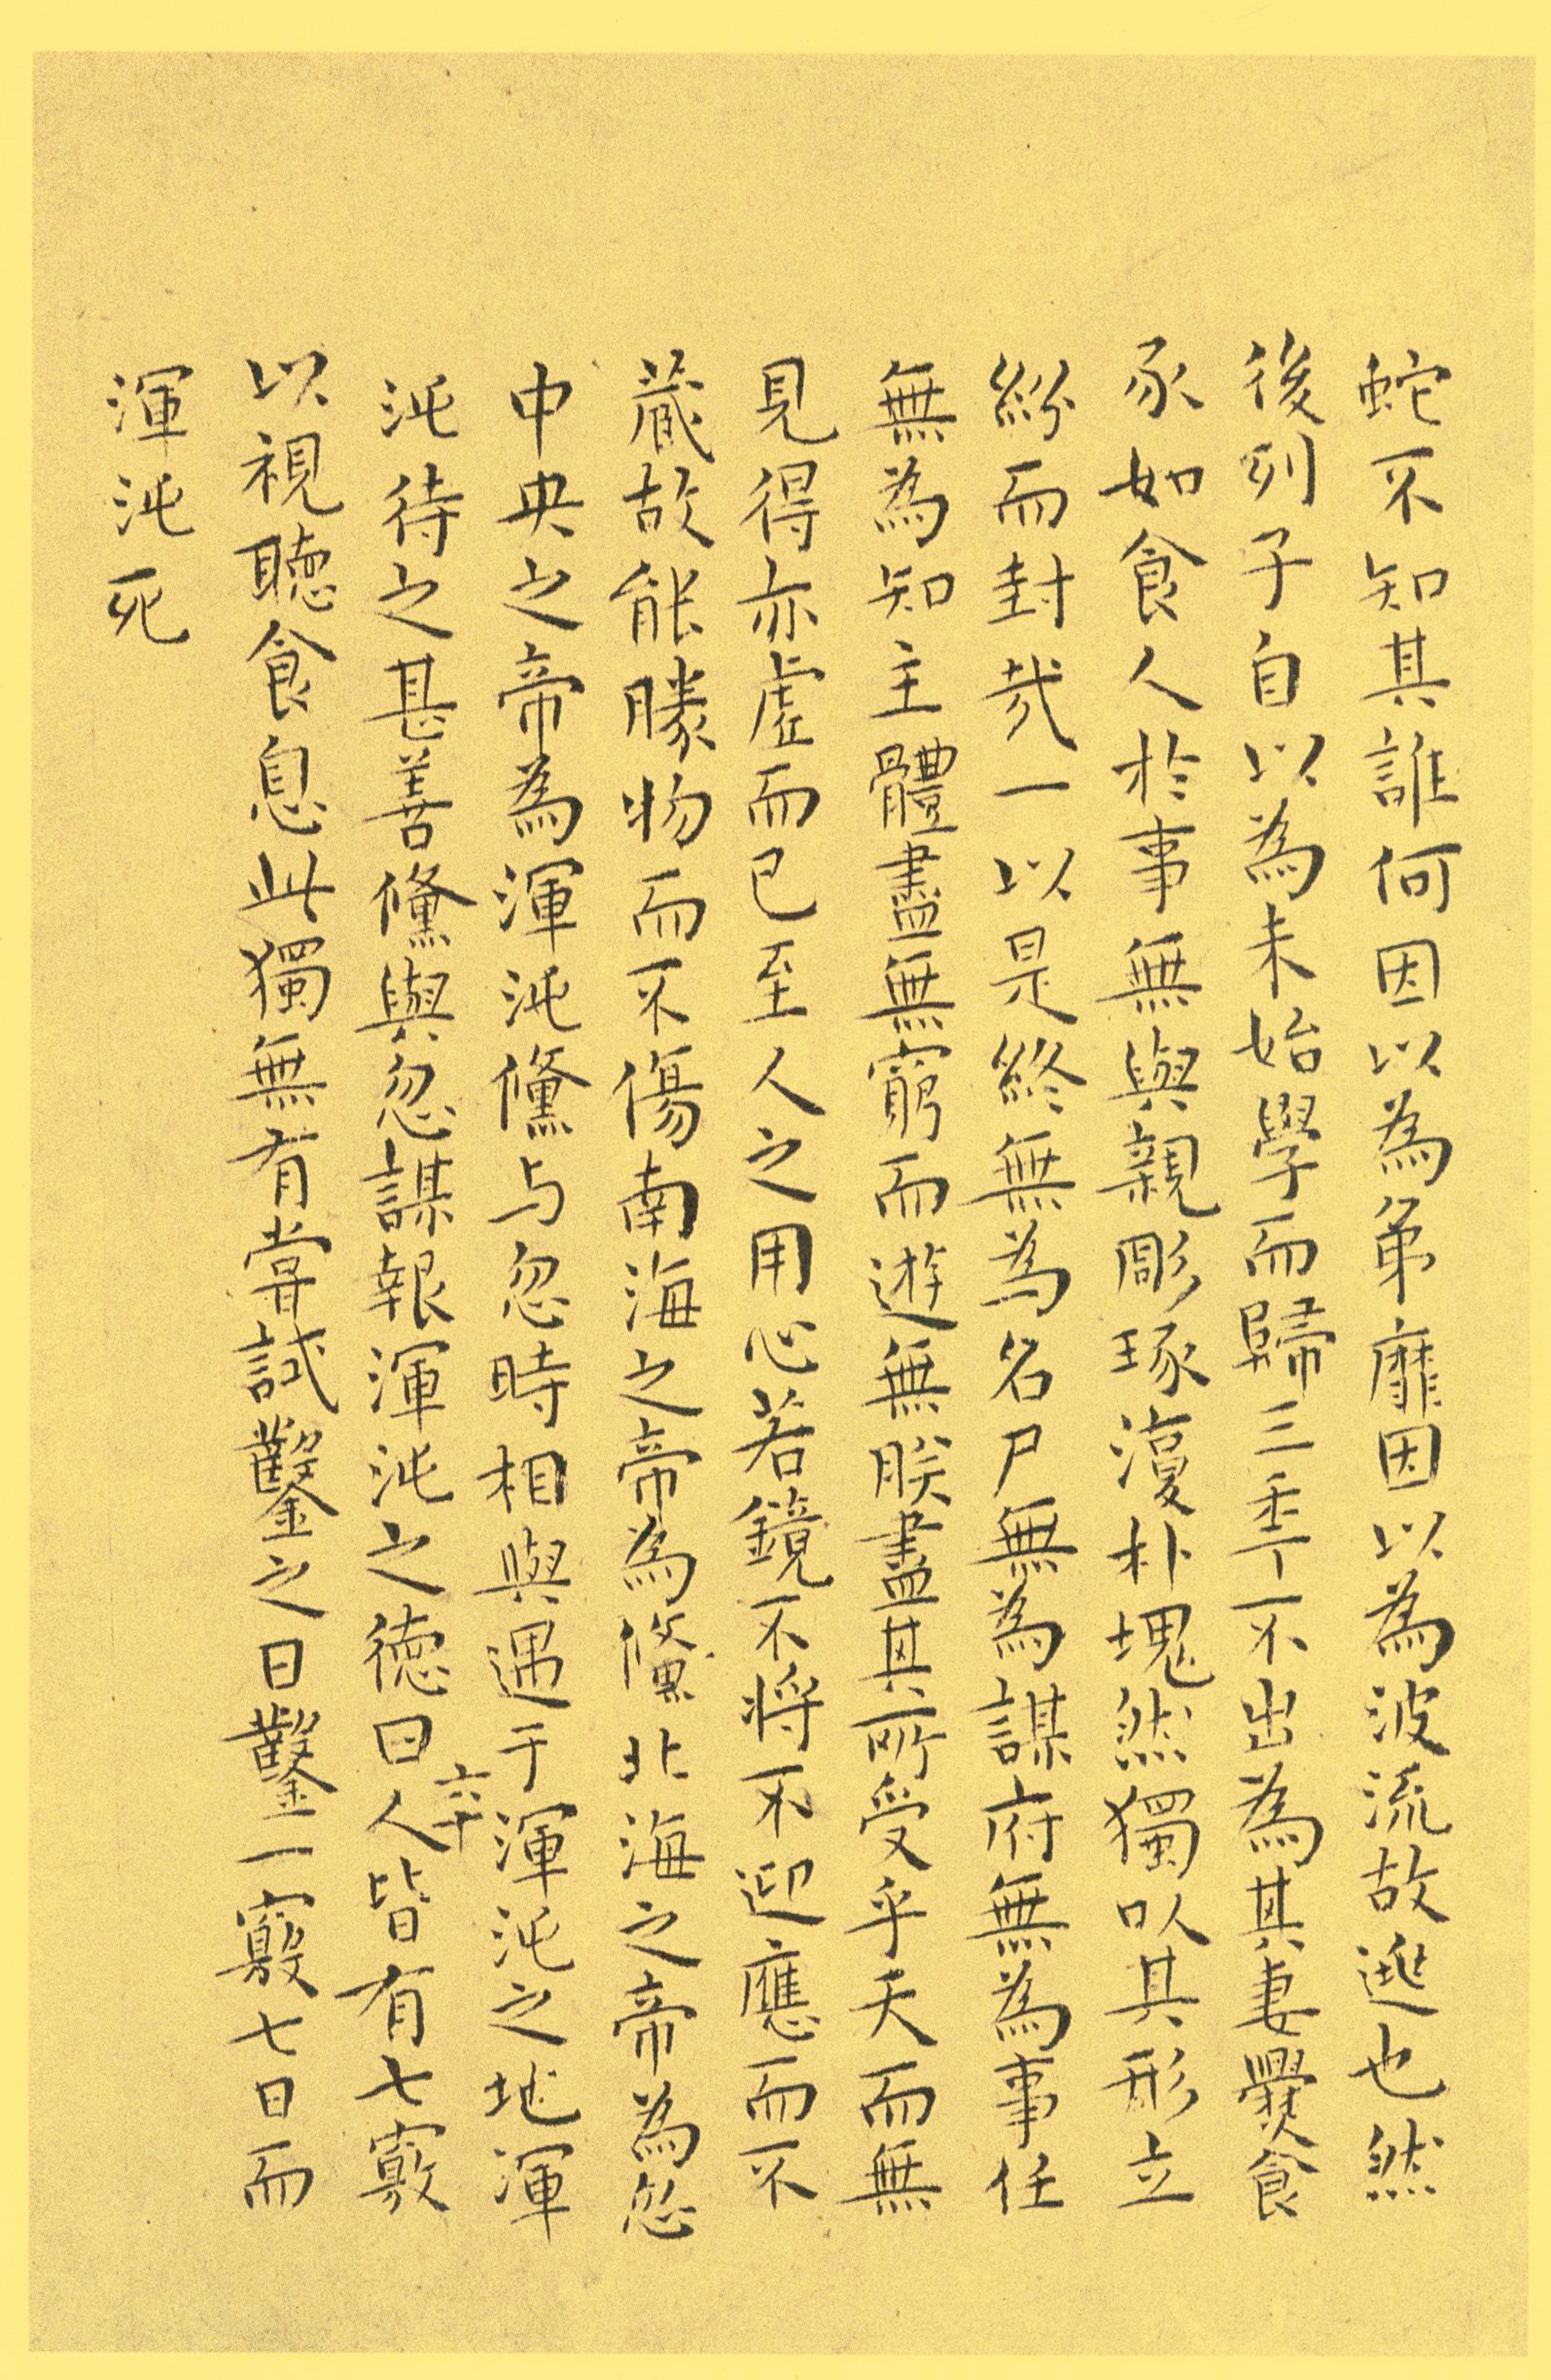 蛇不知其誰何因以為弟靡因以為波流故逃也然
後列子自以為未始學而歸三年不出為其妻爨食
豕如食人於事無與親彫琢復朴塊然獨以其形立
紛而封哉一以是終無為名尸無為謀府無為事任
無為知主體盡無窮而遊無朕盡其所受乎天而無
見得亦虛而已至人之用心若鏡不將不迎應而不
藏故能勝物而不傷南海之帝為儵北海之帝為忽
中央之帝為渾沌儵与忽時相與遇于渾沌之地渾
沌待之甚善儵與忽謀報渾沌之德曰人皆有七竅
六十
以視聽食息此獨無有嘗試鑿之日鑿一竅七日而
渾沌死